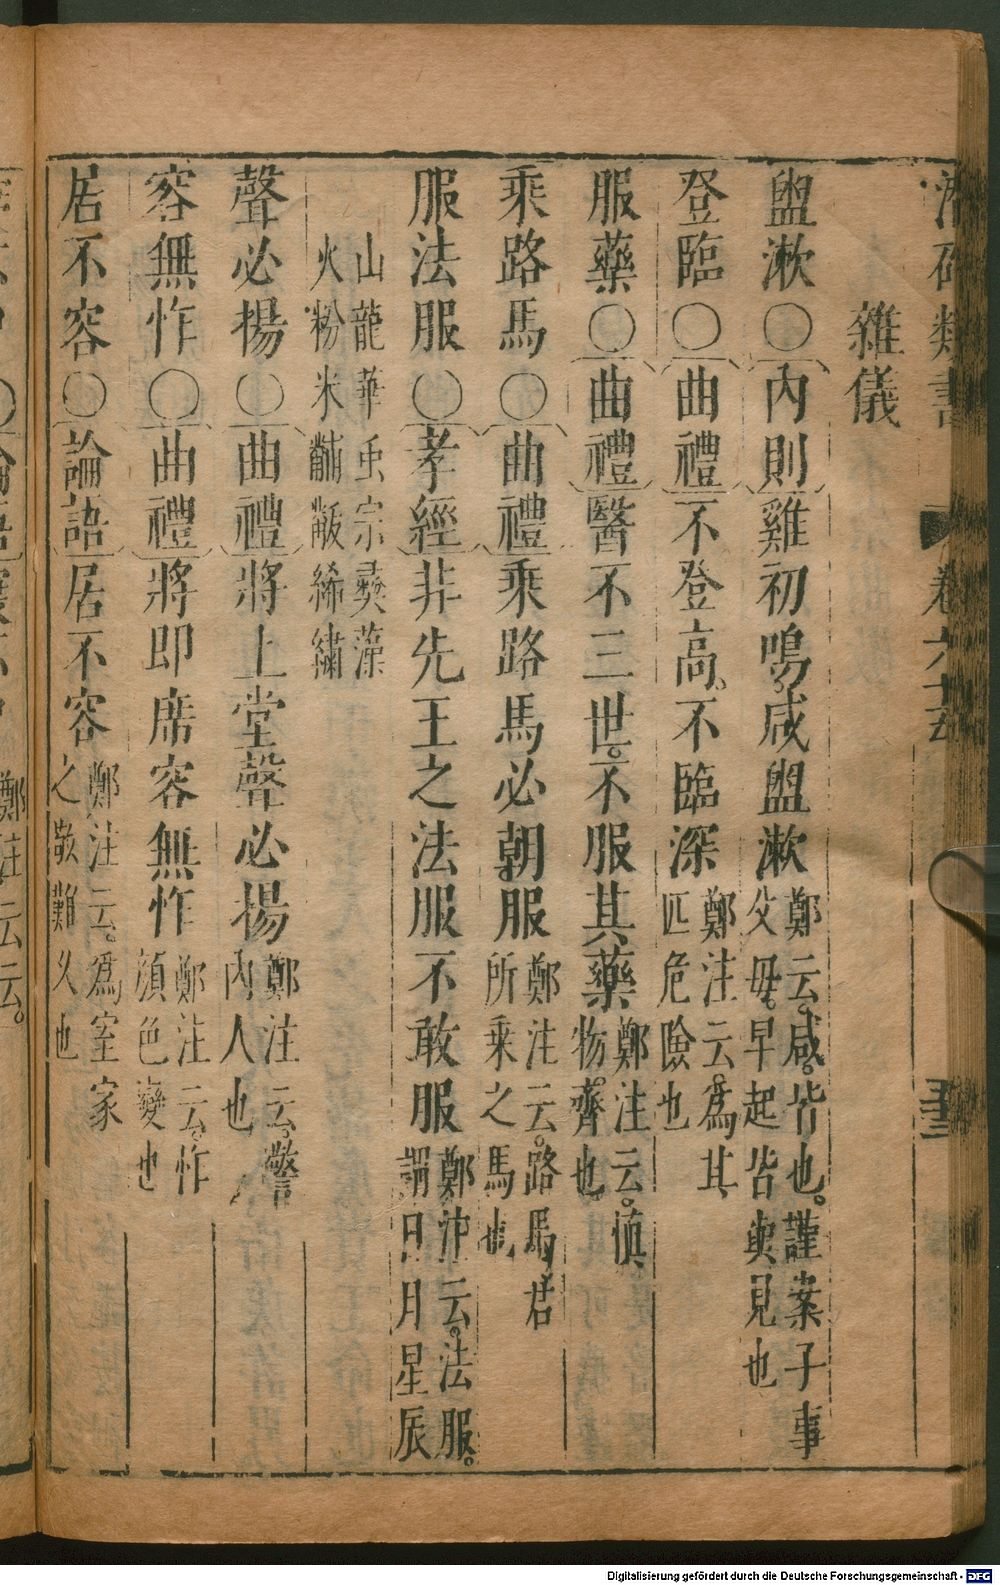 雜儀
盥漱○內則雞初鳴咸盥漱鄭云。咸。皆也。謹案子事父母。早起皆盥見也
登臨○曲禮不登高。不臨深鄭注云。爲其匹危險也
服藥○曲禮醫不三世。不服其藥鄭注云。慎物齊也
乘路馬○曲禮乘路馬必朝服鄭注云。路馬。君所乘之馬也
服法服○孝經非先王之法服不敢服鄭注云。法服。謂日月星辰
山龍華虫宗彝藻火粉米黼黻絺繡
聲必揚○曲禮將上堂聲必揚鄭注云。警內人也
容無怍○曲禮將即席容無怍鄭注云。怍顏色變也
居不容○論語居不容鄭注云。爲室家之敬難久也
類書 卷六十
鄭注云云。
Digitalisierung gefördert durch die Deutsche Forschungsgemeinschaft - DFG